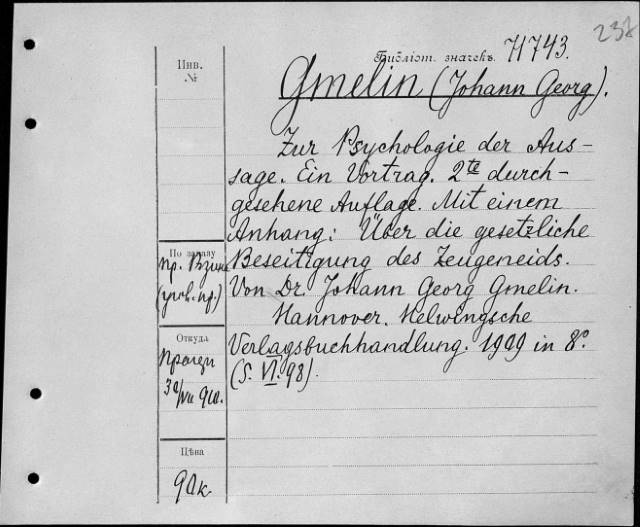 237
Библіот. значекъ. 71743.
Инв.
№
Gmelin (Johann Georg).
Zur Psychologie der Aus-
sage. Ein Vortrag. 2te durch-
gesehene Auflage. Mit einem
Anhang: Über die gesetzliche
Beseitigung des Zeugeneids.
Von Dr. Johann Georg Gmelin.
Hannover. Helwingsche
Verlagsbuchhandlung. 1909 in 8o.
(S. VI. 98).
По заказу
пр.
(угов. пр.)
Откуда
910.
Цѣна
90 к.